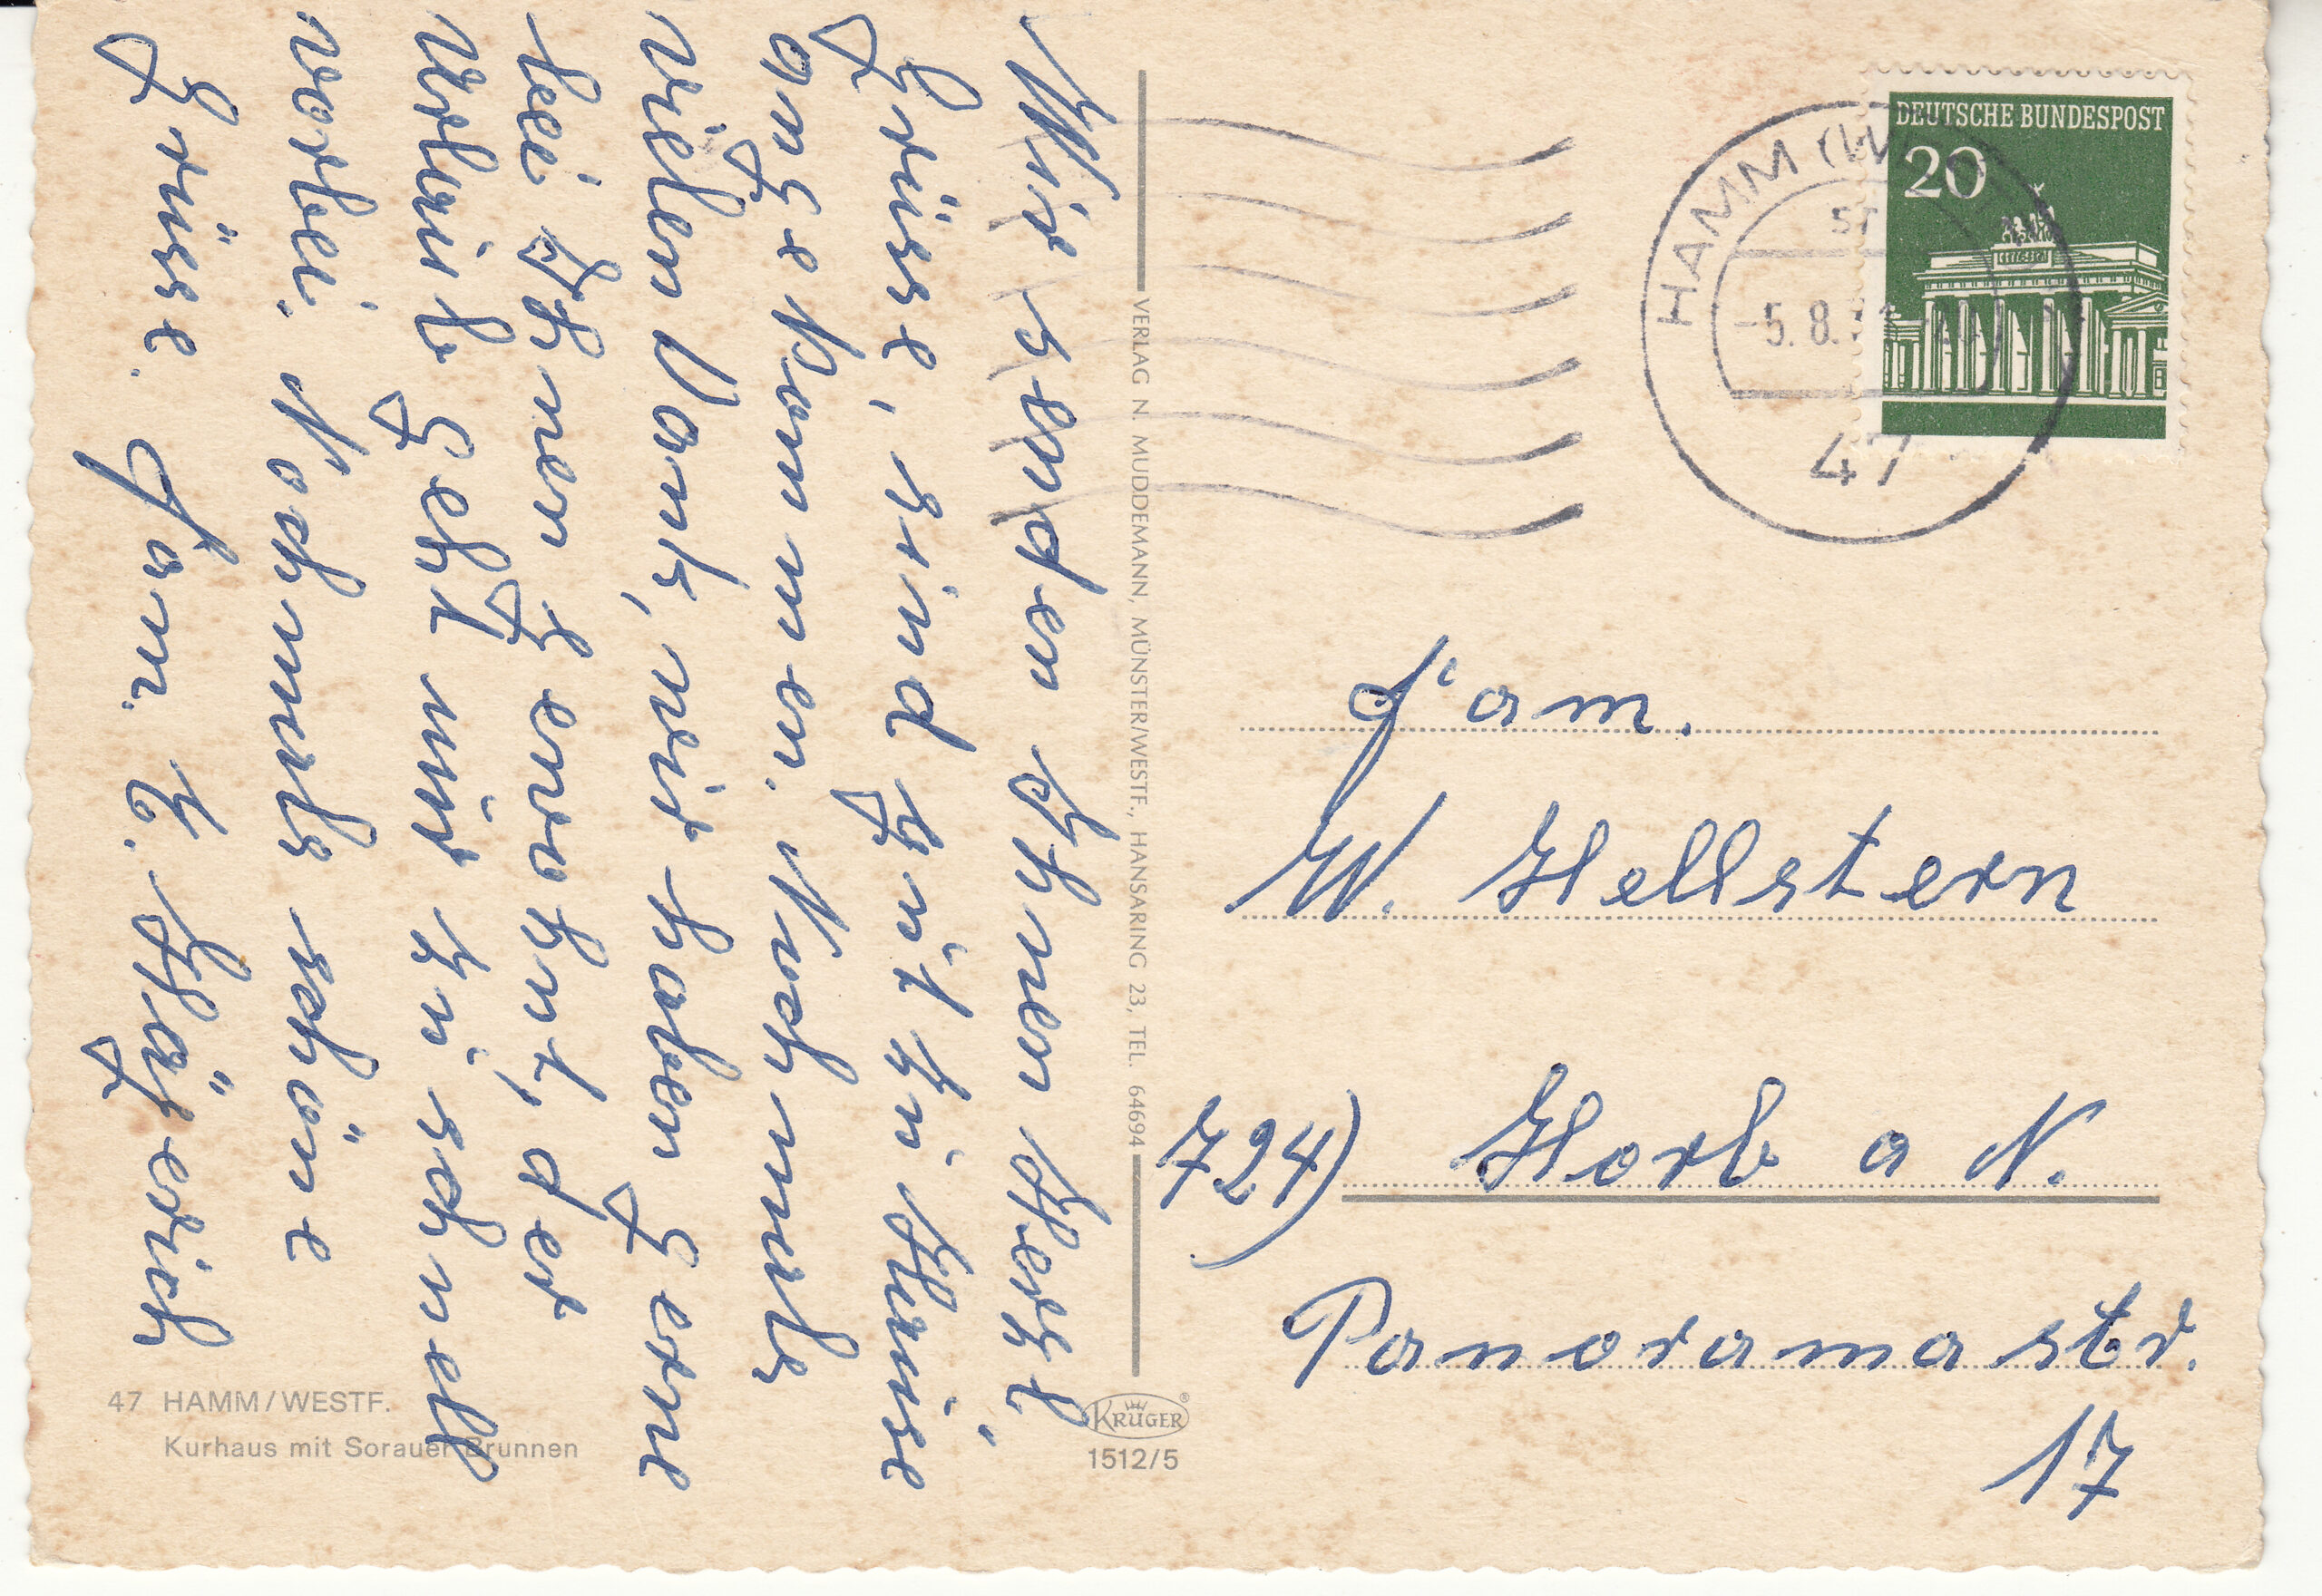 Wir senden Ihnen herzl.
Grüsse, sind gut zu Hause
angekommen. Nochmals
vielen Dank, wir haben gerne
bei Ihnen gewohnt, der
Urlaub geht nur zu schnell
vorbei. Nochmals schöne
Grüsse. Fam.
47 HAMM/WESTF.
Kurhaus mit Sorauer Brunnen
VERLAG N. MUDDEMANN, MÜNSTER/WESTF., HANSARING 23, TEL. 64694
KRÜGER
1512/5
DEUTSCHE BUNDESPOST
20
HAMM (W
-5.8.
47
Fam.
W. Hellstern
724) Horb a N.
Panoramastr.
17